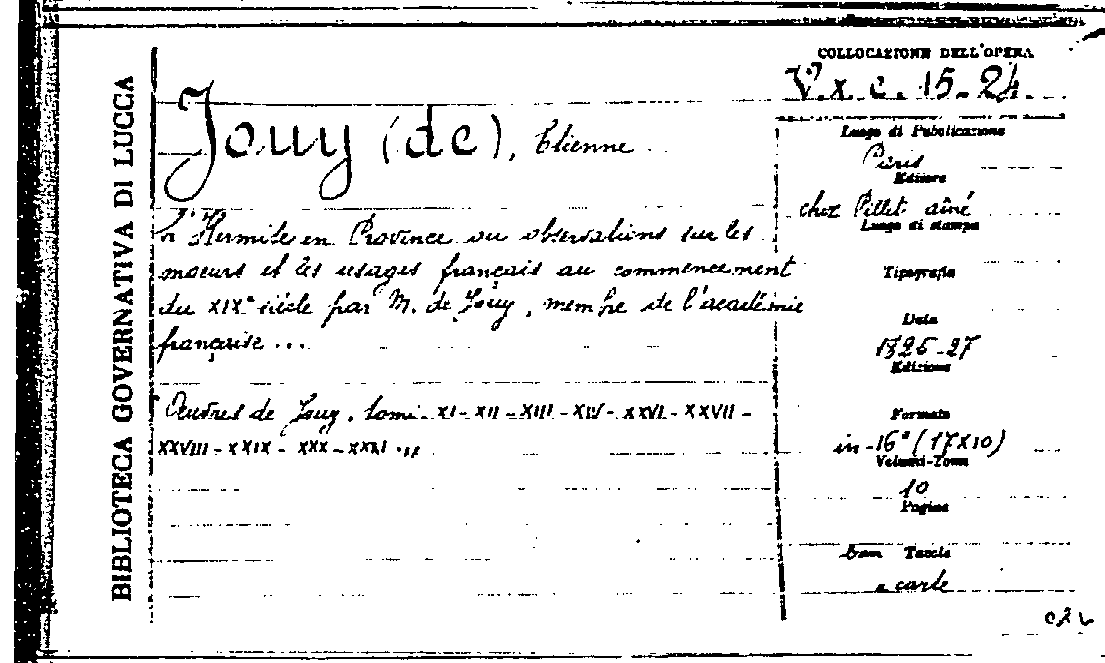 BIBLIOTECA GOVERNATIVA DI LUCCA
Jouy (de), Etienne
L'Hermite en Province ou observations sur les
moeurs et les usages français au commencement
du XIXe siècle par M. de Jouy, membre de l'académie
française ...
Oeuvres de Jouy. tomi XI - XII - XIII - XIV - XXVI - XXVII -
XXVIII - XXIX - XXX - XXXI ...
COLLOCAZIONE DELL'OPERA
V. x. c. 15-24.
Luogo di Pubblicazione
Paris
Editore
chez Pillet aîné
Luogo di stampa
Tipografia
Data
1825-27
Edizione
Formato
in-16° (17x10)
Volumi-Tomi
10
Pagine
Tavole
carte